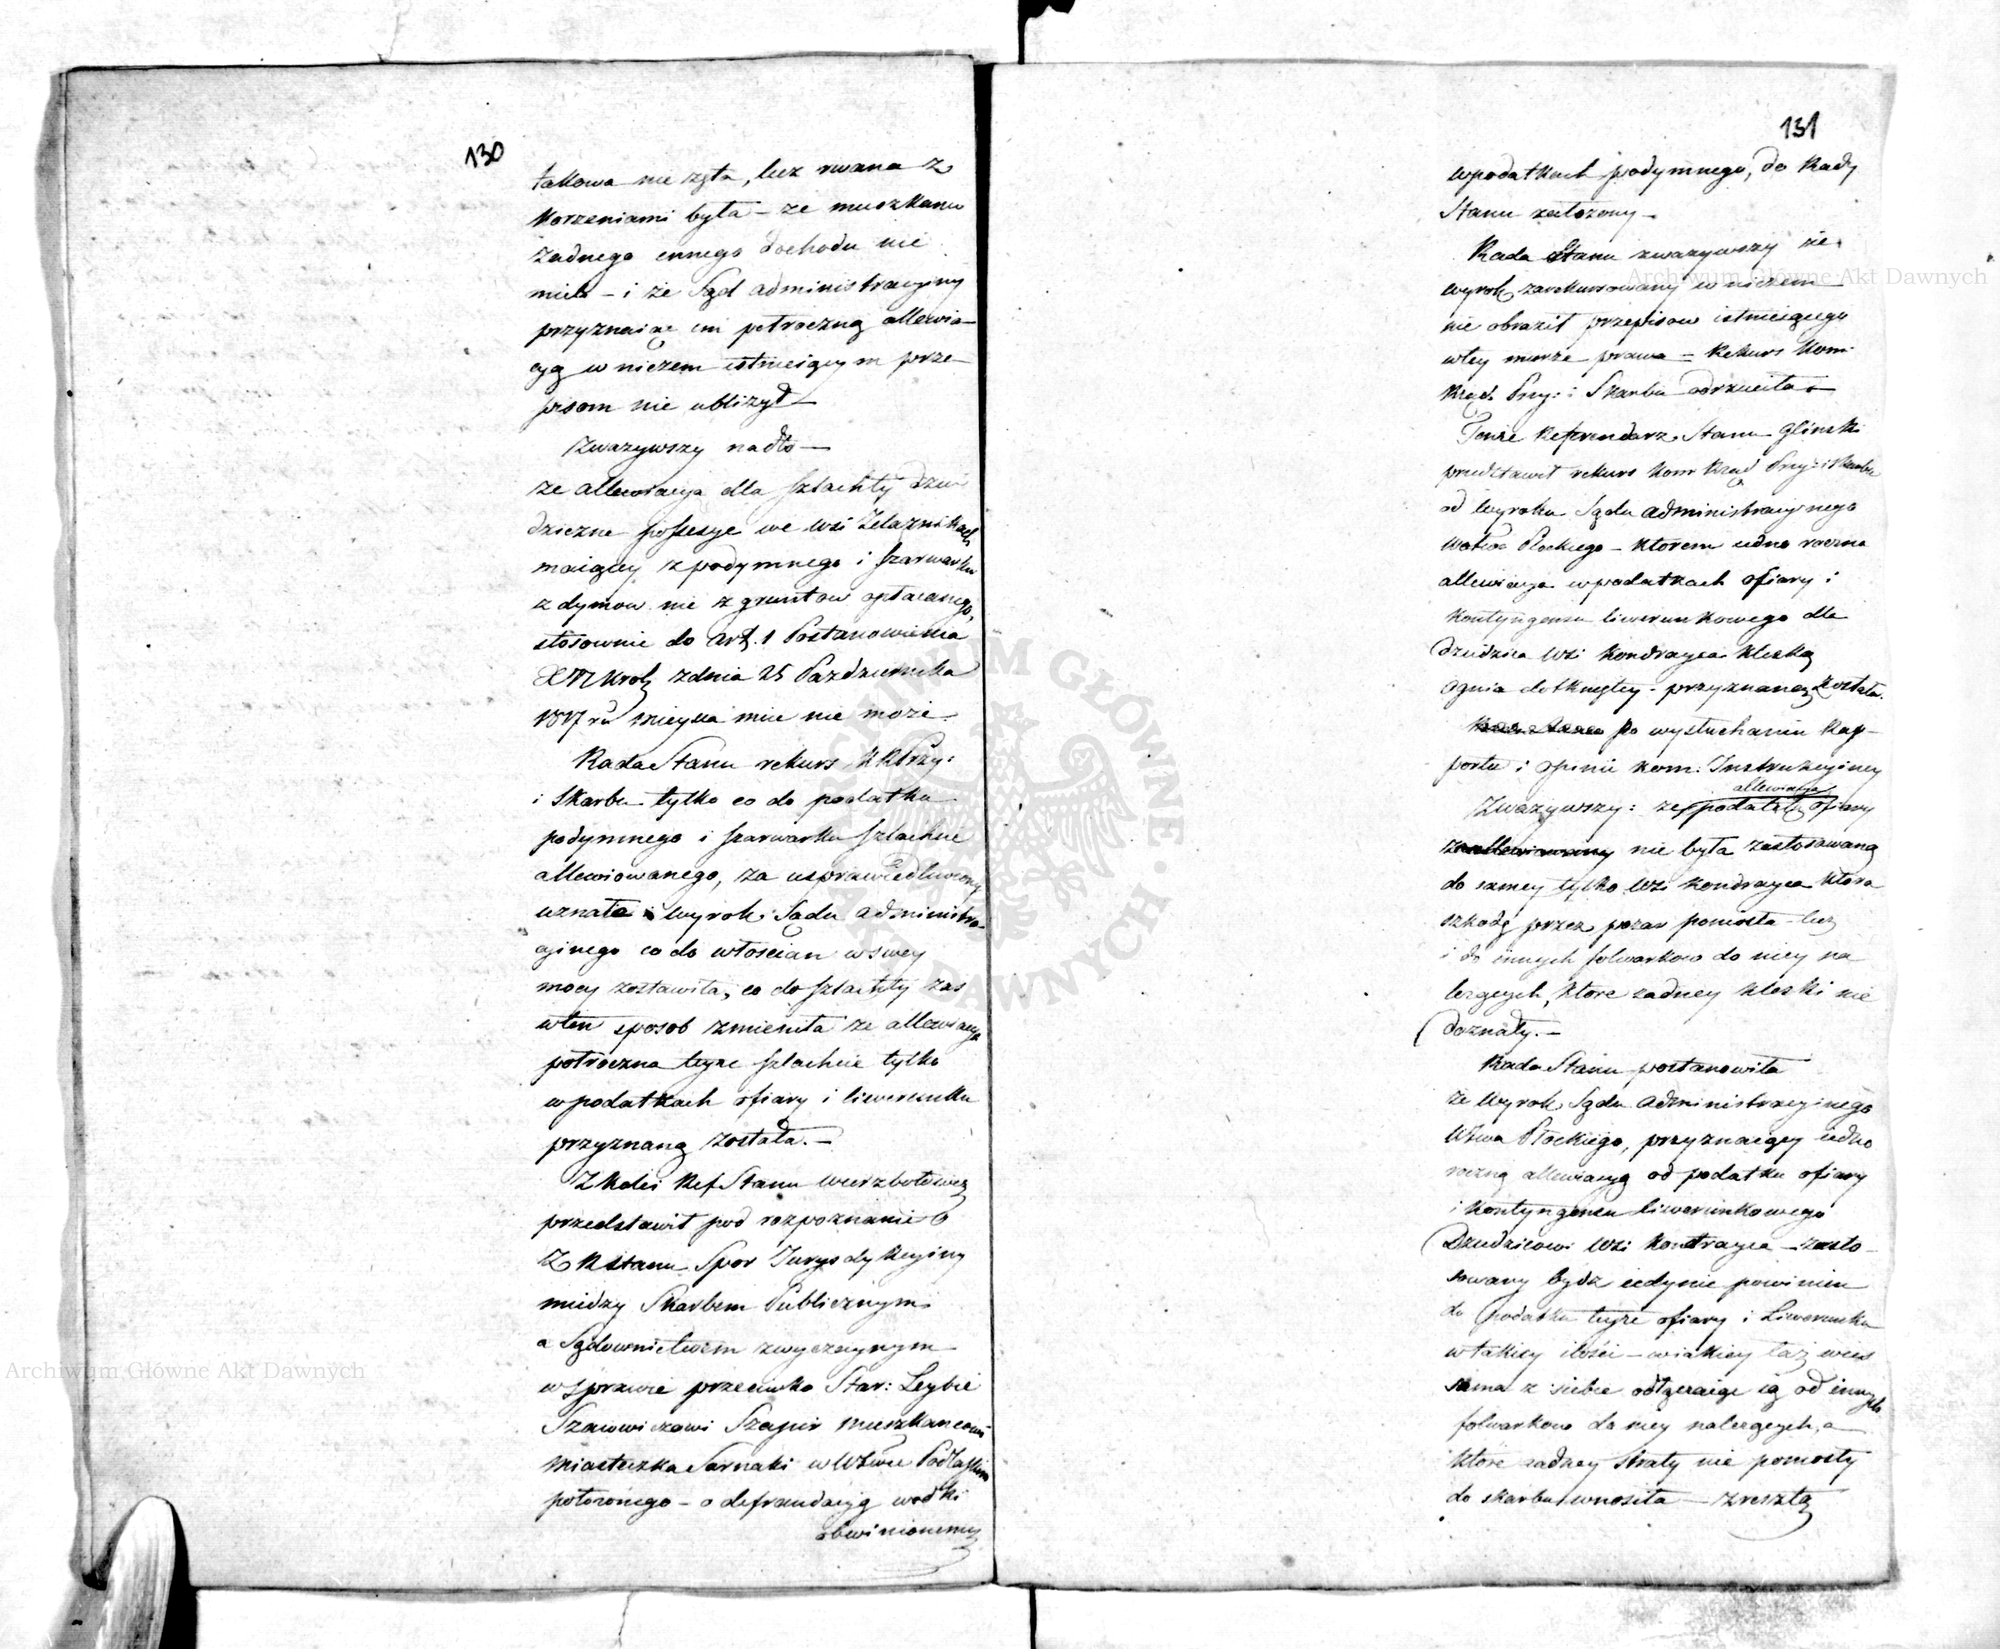 130
takowa nie zęta, lecz rwana z
korzeniami była – ze mieszkańcy
żadnego innego dochodu nie
mieli – i że Sąd administracyiny
przyznaiąc im pułroczną allewia–
cyą w niczem istnieiącym prze–
pisom nie ubliżył –
Zważywszy nadto –
że allewiacya dla szlachty dzie
dziczne possesye we wsi Żelaznikach
maiącey z podymnego i szarwarku
z dymow nie z gruntow opłacanego,
stosownie do art. 1 Postanowienia
X N Krol z dnia 25 Października
1817 ru mieysca mieć nie może.
Rada Stanu rekurs K R Przy:
i Skarbu tylko co do podatku
podymnego i szarwarku szlachcie
allewiowanego, za usprawiedliwiony
uznała i wyrok Sądu administra–
cyinego co do włościan w swey
mocy zostawiła, co do szlachty zaś
w ten sposob zmieniła że allewiacya
pułroczna teyże szlachcie tylko
w podatkach ofiary i liwerunku
przyznaną została. –
Z kolei Ref Stanu Wierzbołowicz
przedstawił pod rozpoznanie
Stanu Spor Jurysdykcyiny
między Skarbem Publicznym
a Sądownictwem zwyczaynym
w sprawie przeciwko Star: Leybie
Szapir mieszkancowi
miasteczka Sarnaki w Wztwie Podlaskim
położonego – o defraudacyą wodki
obwinionemu
131
w podatkach podymnego, do Rady
Stanu założony –
Rada Stanu zważywszy że
wyrok zarekursowany w niczem
nie obraził przepisow istnieiącego
w tey mierze prawa – Rekurs Kom
Rząd. Przy: i Skarbu odrzuciła –
Tenże Referendarz Stanu Glinski
przedstawił rekurs Kom Rząd Przy: i Skarbu
od wyroku Sądu administracyinego
Wztwa Płockiego – ktorem iedno roczna
allewiacya w podatkach ofiary i
kontyngensu liwerunkowego dla
dziedzica wsi Kondrayca klęską
ognia dotkniętey – przyznaną została.
Po wysłuchaniu Rap–
portu i opinii Kom: Instrukcyiney
allewiacya
Zważywszy: że podatku ofiary
nie była zastosowaną
do samey tylko wsi Kondrayca ktora
szkodę przez pożar poniosła lecz
i do innych folwarkow do niey na
leżących, ktore żadney klęski nie
doznały. –
Rada Stanu postanowiła
że wyrok Sądu administracyinego
Wztwa Płockiego, przyznaiący iedno
roczną allewiacyą od podatku ofiary
i Kontyngensu liwerunkowego
Dziedzicowi wsi Kondrayca – zasto–
sowany bydź iedynie powinien
do podatku teyże ofiary i Liwerunku
w takiey ilości – w iakiey taż wieś
sama z siebie odłączaiąc ią od innych
folwarkow do niey należących, a
ktore żadney straty nie poniosły
do skarbu wnosiła – zresztą
Archiwum Główne Akt Dawnych
Archiwum Główne Akt Dawnych
ARCHIWUM GŁÓWNE AKT DAWNYCH